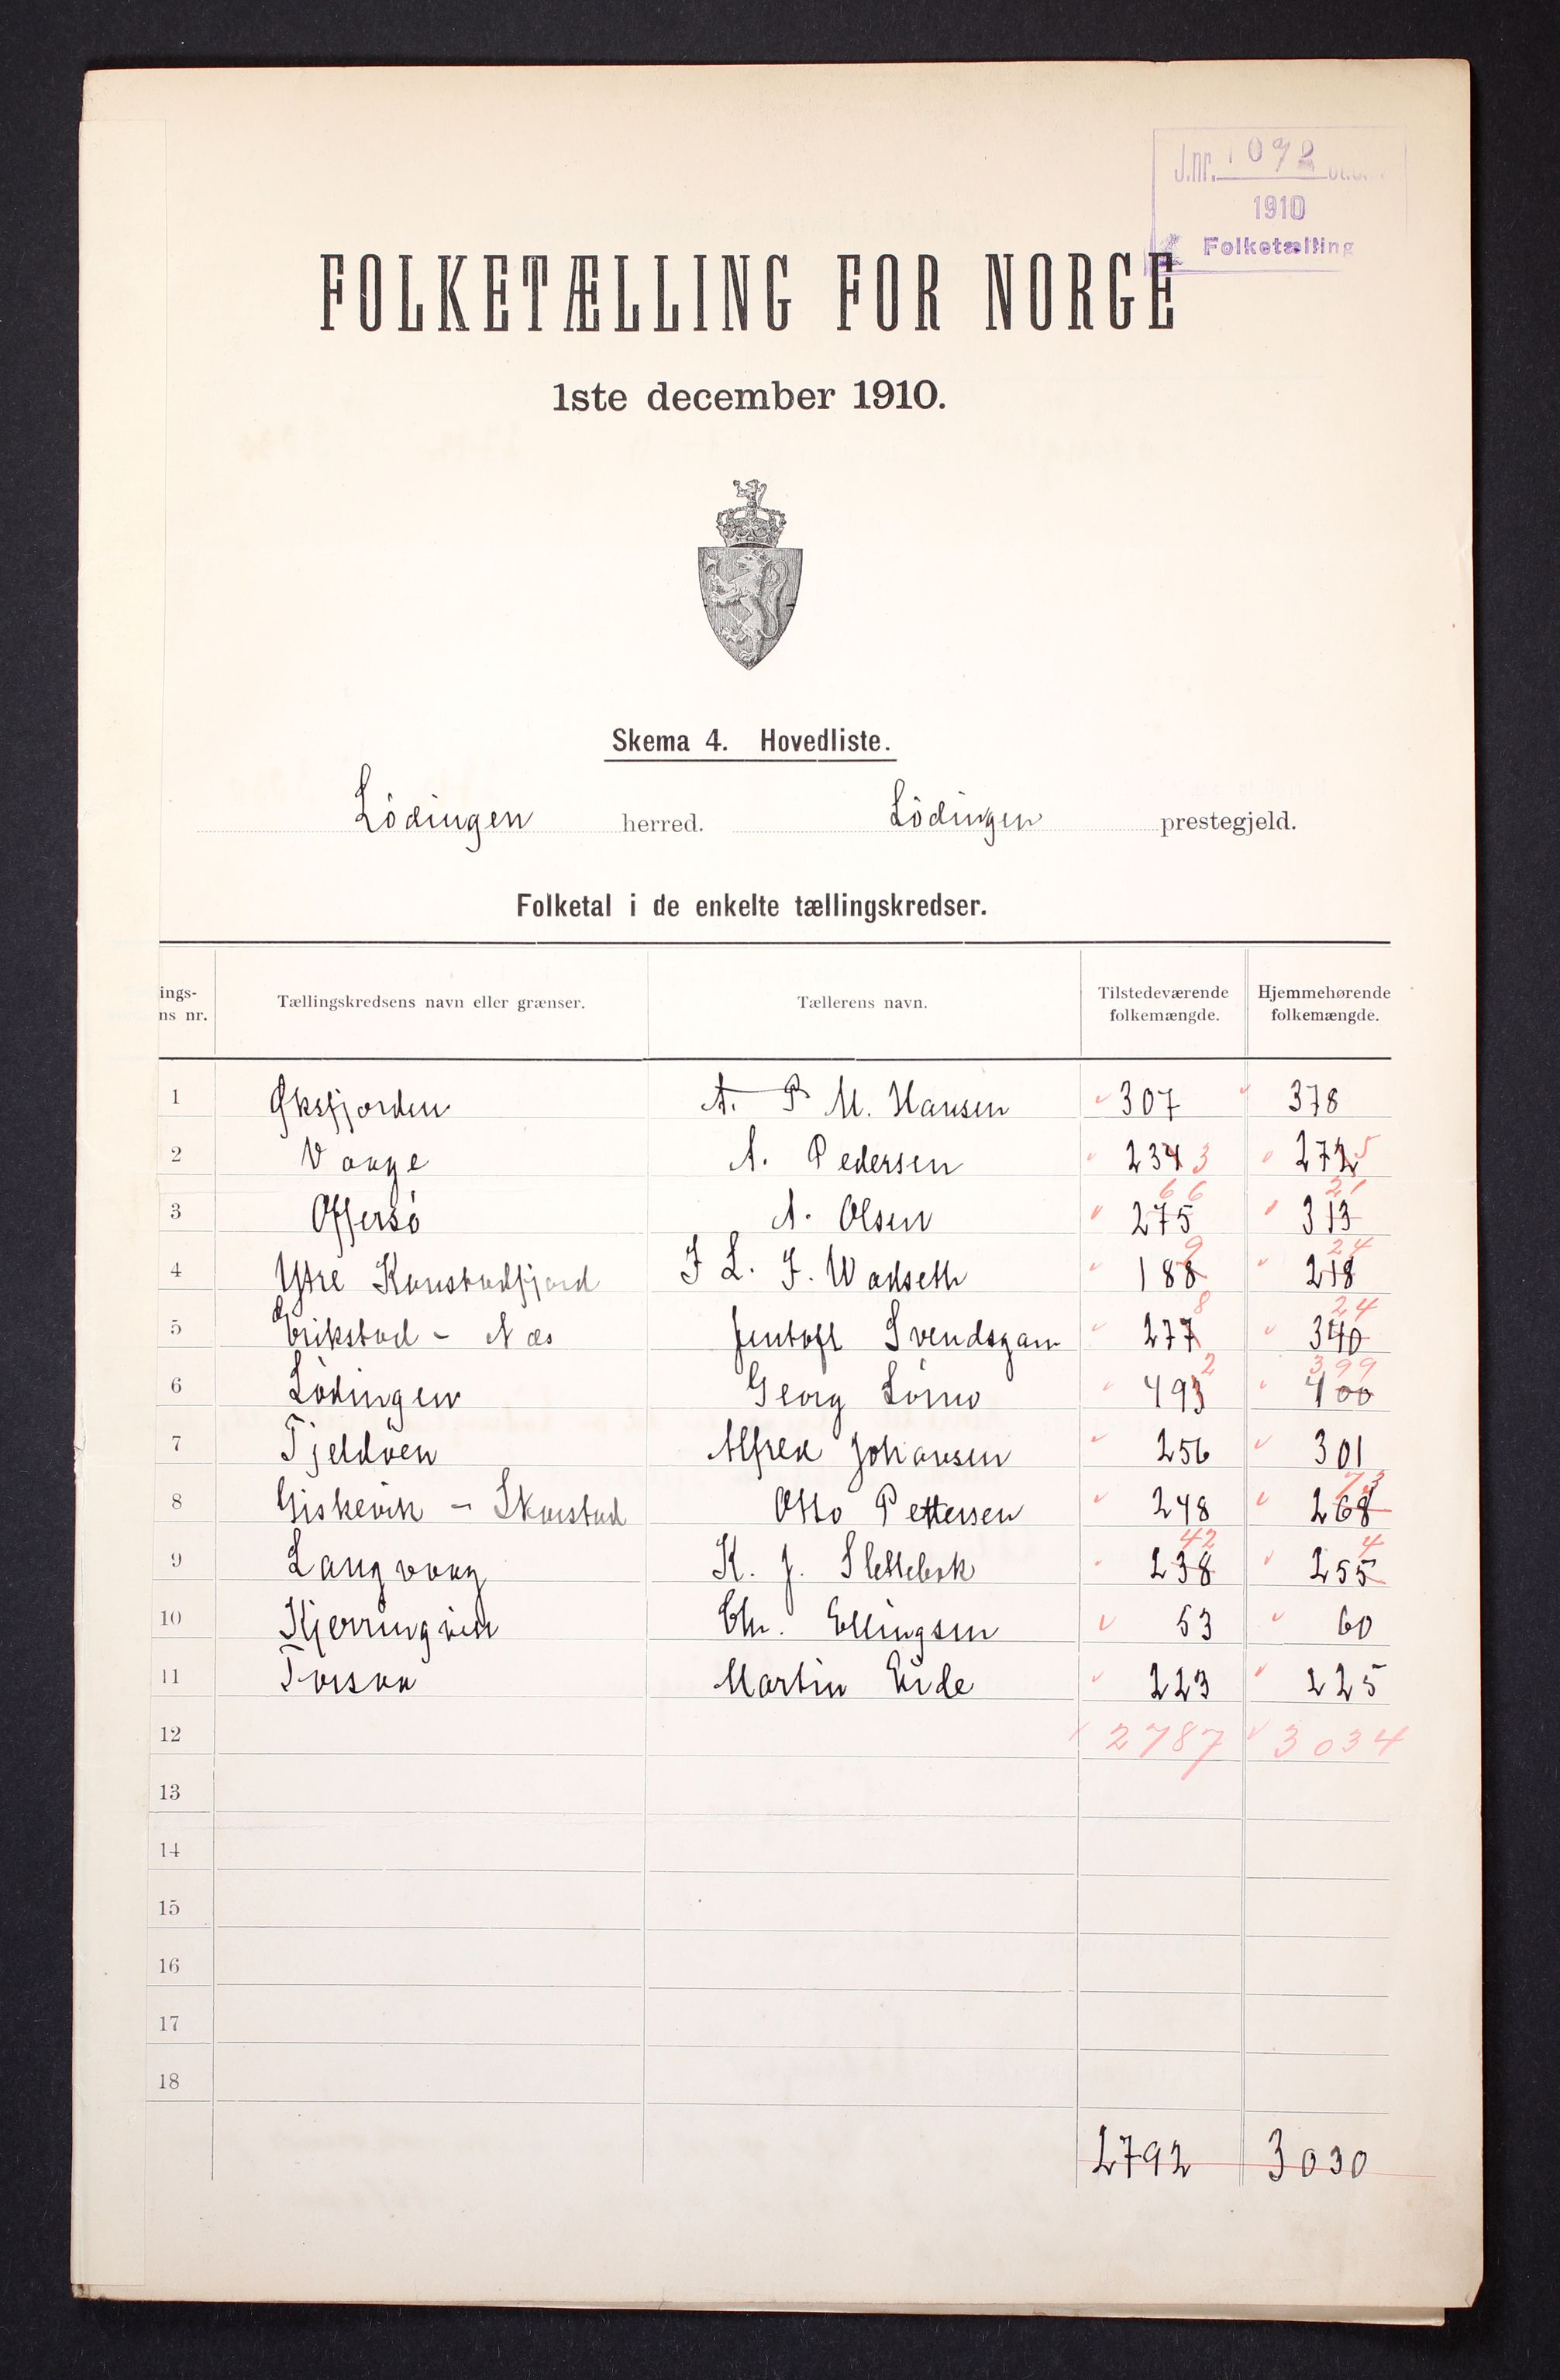 J.nr. 1092
1910
Folketælling
FOLKETÆLLING FOR NORGE
1ste december 1910.
Skema 4. Hovedliste.
Lödingen herred. Lödingen prestegjeld.
Folketal i de enkelte tællingskredser.
ings- ns nr. Tællingskredsens navn eller grænser. Tællerens navn. Tilstedeværende folkemængde. Hjemmehørende folkemængde.
1 Øksfjorden A. P M. Hansen 307 378
2 Vaage A. Pedersen 234 3 272 5
66 21
3 Offersö A. Olsen 275 313
9 24
4 Ytre Kanstadfjord F L. J. Wadseth 188 218
8 24
5 Erikstad - Næs Jentoft Svendsgam 277 340
2 399
6 Lödingen Georg Lömo 493 400
7 Tjeldöen Alfred Johansen 256 301
73
8 Giskevik - Skarstad Otto Pettersen 248 268
42 4
9 Langvaag K. J. Slettebak 238 255
10 Kjerringvik Chr. Ellingsen 53 60
11 Martin Eide 223 225
12 2787 3034
13
14
15
16
17
18
2792 3030